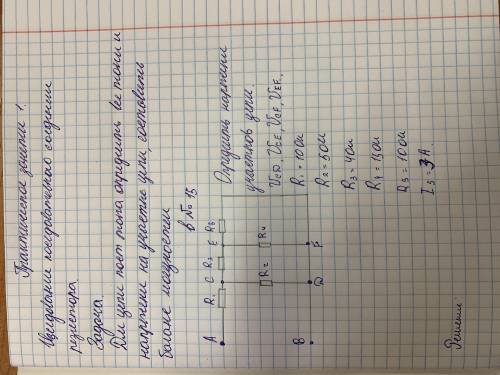 Практическое занятие 1.
последовательного соединении
резистора.
Задача.
Для цепи пост тока определить все токи и
напряжени на участке цепи составить
баланс мощностей
в № 15
A R1 C R3 E R5
R2 R4
B D F
Определить напряжени
участков цепи.
R1 = 10 Ом
R2 = 5 Ом
R3 = 4 Ом
R4 = 15 Ом
R5 = 10 Ом
I5 = 3 А
Решение